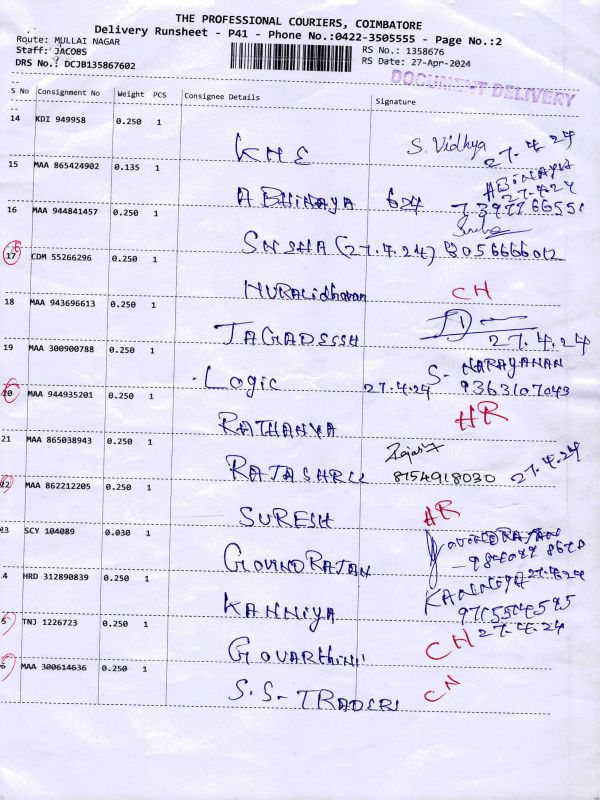 THE PROFESSIONAL COURIERS, COIMBATORE
Delivery Runsheet - P41 - Phone No.:0422-3505555 - Page No.:2
Route: MULLAI NAGAR RS No.: 1358676
Staff: JACOBS RS Date: 27-Apr-2024
DRS No.: DCJB135867602
DOCUMENT DELIVERY
S No Consignment No Weight PCS Consignee Details Signature
14 KDI 949958 0.250 1
KHE S. Vidhya 27.4.24
15 MAA 865424902 0.135 1
ABHINAYA 624 ABINAYA 27.4.24
16 MAA 944841457 0.250 1
SNSHA (27.4.24) 8056666012
17 CDM 55266296 0.250 1
MURALidharan CH
18 MAA 943696613 0.250 1
JAGADESSH 27.4.24
19 MAA 300900788 0.250 1
Logic 27.4.24 S. NARAYANAN 9363107043
20 MAA 944935201 0.250 1
RATHANYA HR
21 MAA 865038943 0.250 1
RAJASHREE 8754918030 27.4.24
22 MAA 862212205 0.250 1
SURESH HR
23 SCY 104089 0.030 1
GOVINDRAJAN GOVINDRAJAN
4 HRD 312890839 0.250 1
KANNIYA KANNIYA 27.4.24
5 TNJ 1226723 0.250 1
GOVARthini CH 27.4.24
6 MAA 300614636 0.250 1
S.S- TRADERS CN